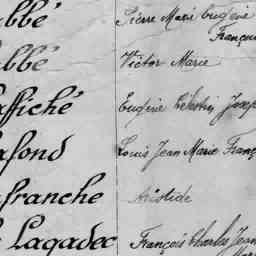 abbé Pierre Marie Eugène
François
abbé Victor Marie
affiché Eugène Célestin Josep
afond Louis Jean Marie Franç
afranche Aristide
Lagadec François Charles Jean